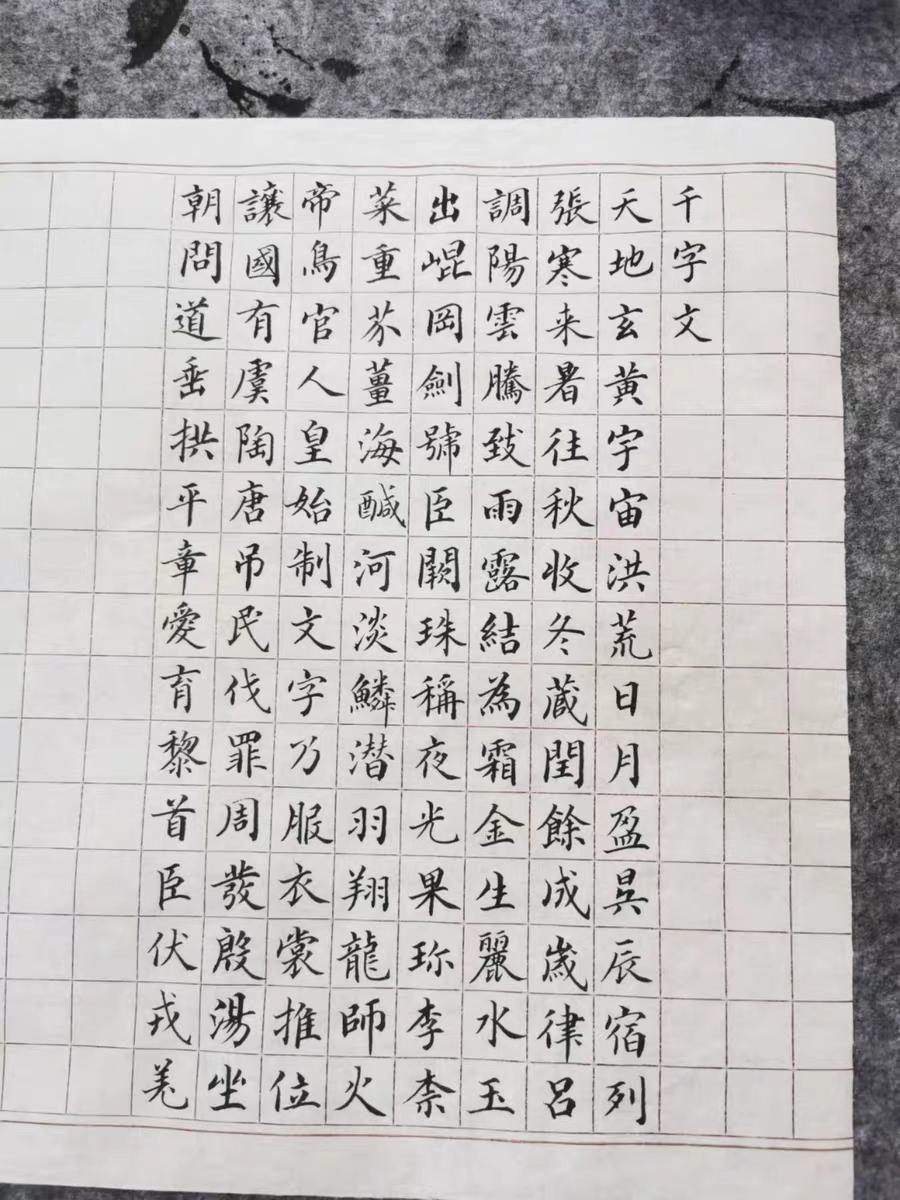 千字文
天地玄黄宇宙洪荒日月盈昃辰宿列
張寒来暑往秋收冬蔵閏餘成歲律吕
調陽雲騰致雨露結為霜金生麗水玉
出崐岡劍號臣闕珠稱夜光果珎李柰
菜重芥薑海鹹河淡鱗潜羽翔龍師火
帝鳥官人皇始制文字乃服衣裳推位
讓國有虞陶唐吊民伐罪周發殷湯坐
朝問道垂拱平章愛育黎首臣伏戎羌